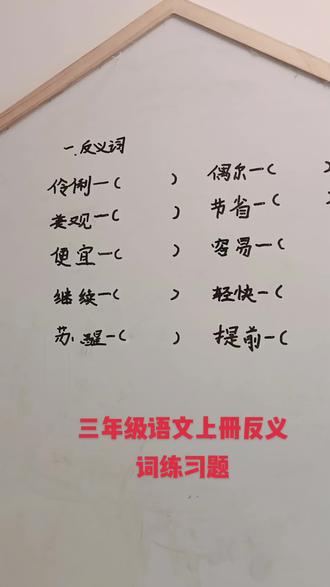 一、反义词
伶俐—(     )  偶尔—(     )
美观—(     )  节省—(     )
便宜—(     )  容易—(
继续—(     )  轻快—(
苏醒—(     )  提前—(
三年级语文上册反义
词练习题